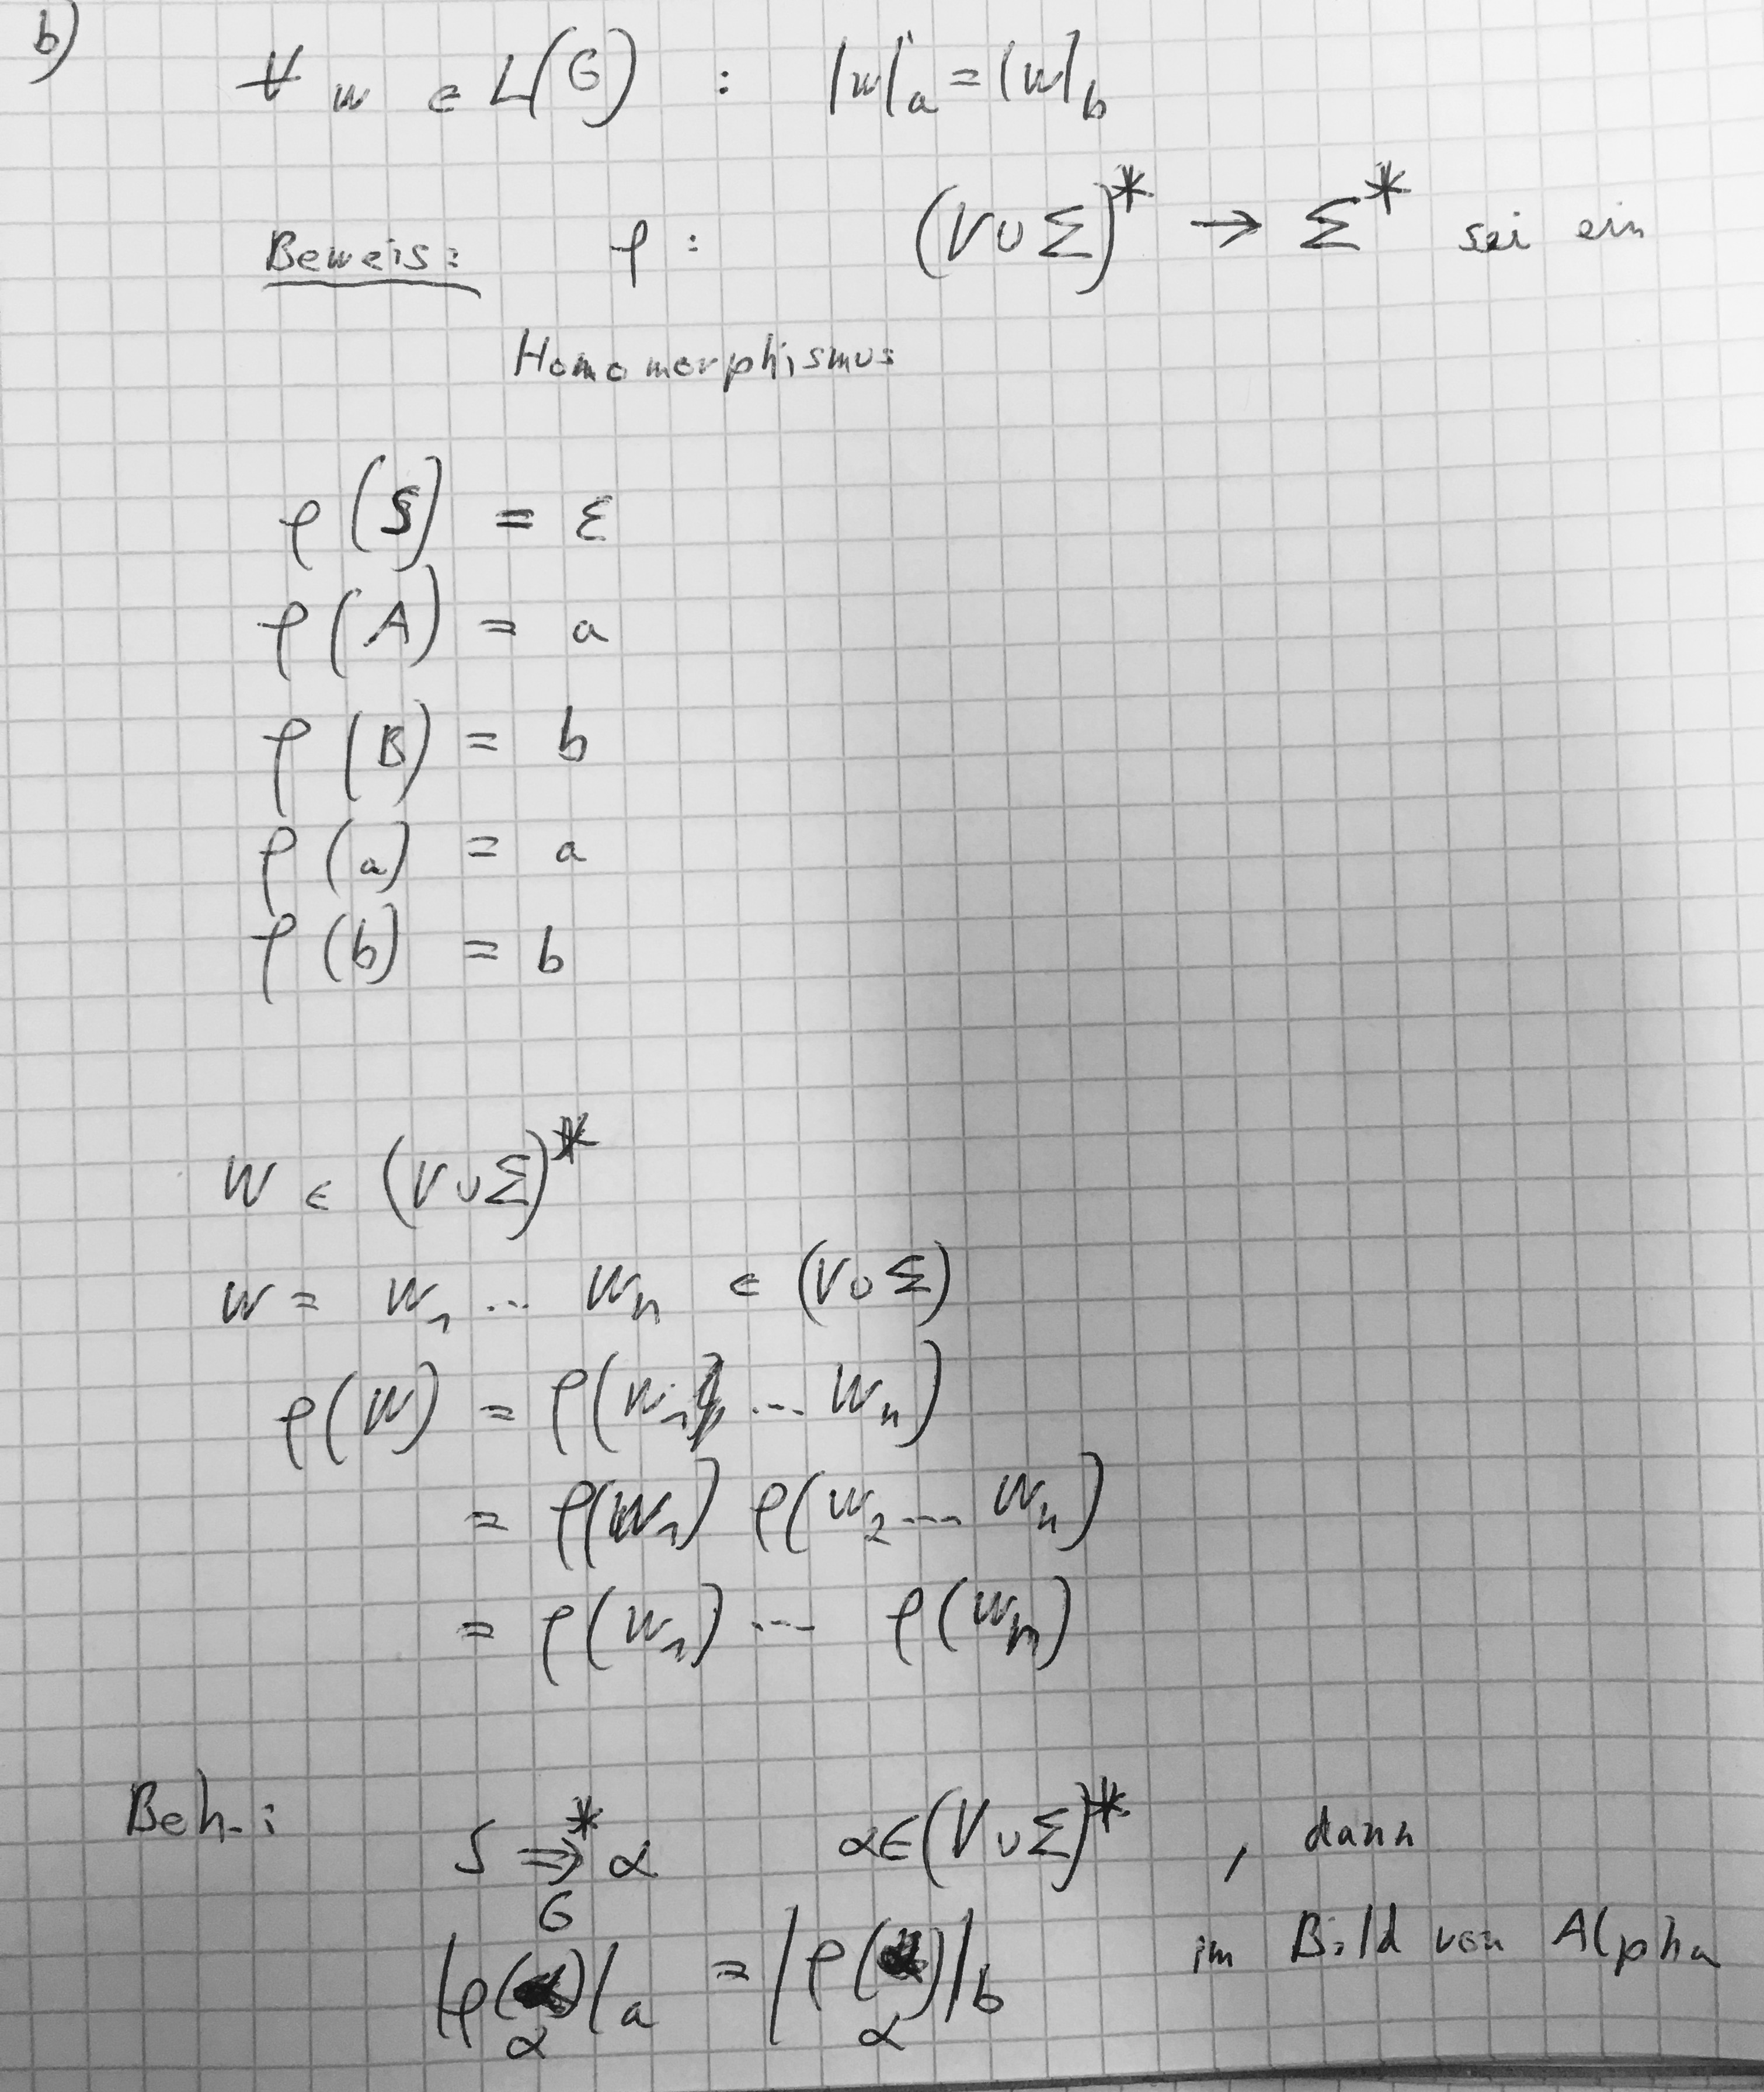 b)
∀ w ∈ L(G) : |w|a = |w|b
Beweis: φ : (V ∪ Σ)* → Σ* sei ein
Homomorphismus
φ(S) = ε
φ(A) = a
φ(B) = b
φ(a) = a
φ(b) = b
W ∈ (V ∪ Σ)*
w = w₁ ... wₙ ∈ (V ∪ Σ)
φ(W) = φ(w₁ ... wₙ)
= φ(w₁) φ(w₂ ... wₙ)
= φ(w₁) ... φ(wₙ)
Beh.: S ⇒*G α α ∈ (V ∪ Σ)* , dann
|φ(α)|a = |φ(α)|b im Bild von Alpha